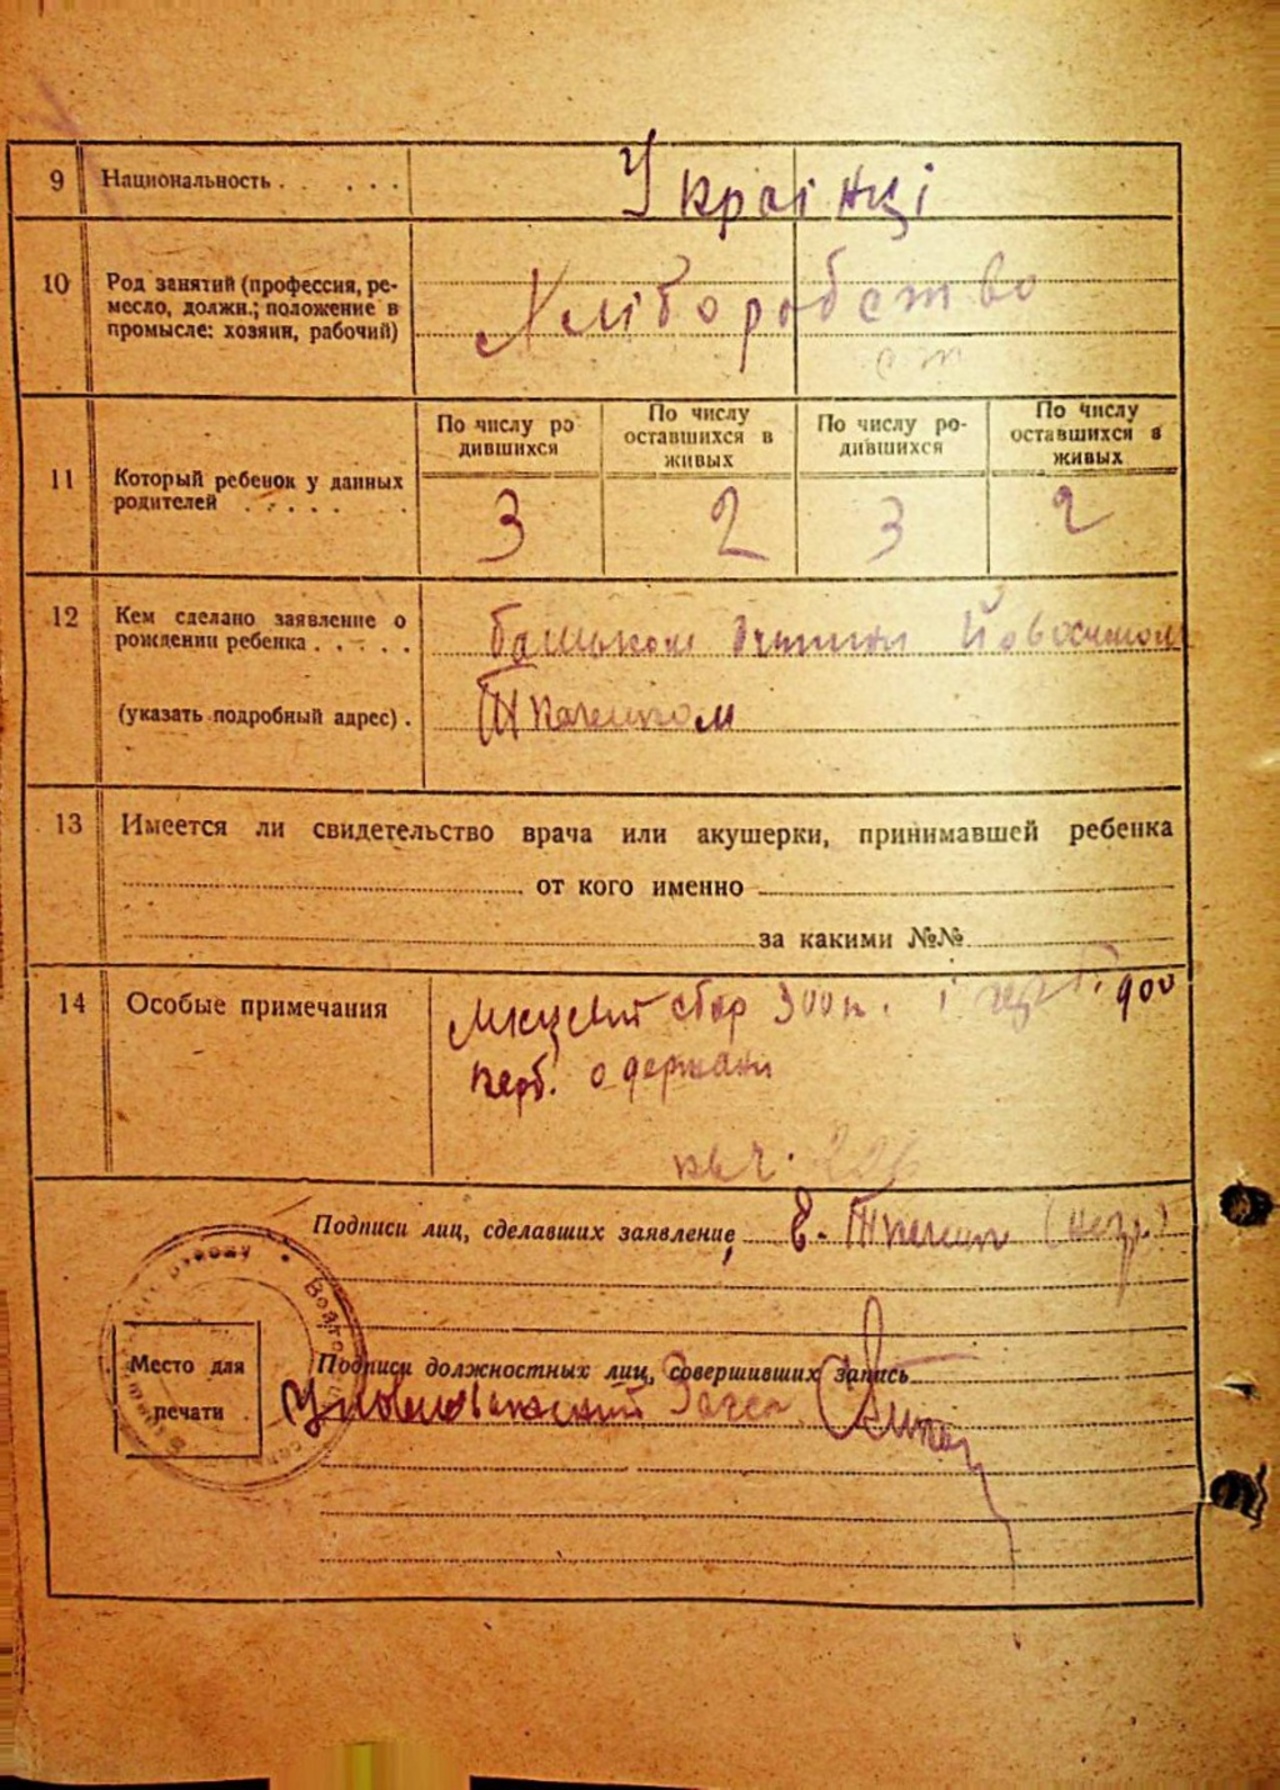 9 Национальность . . . . . Україн нці
10 Род занятий (профессия, ре-
месло, должн.; положение в
промысле: хозяин, рабочий)
Хліборобство
11 Который ребенок у данных
родителей . . . . . .
По числу ро-
дившихся
По числу
оставшихся в
живых
По числу ро-
дившихся
По числу
оставшихся в
живых
3 2 3 2
12 Кем сделано заявление о
рождении ребенка . . . . .
(указать подробный адрес) .
батьком
Ткаченком
13 Имеется ли свидетельство врача или акушерки, принимавшей ребенка
от кого именно
за какими №№
14 Особые примечания
Місцевий сбор 300 к. і 900
керб. одержані
квт. 226
Подписи лиц, сделавших заявление,
Место для
печати
Подписи должностных лиц, совершивших запись
Уповноважений